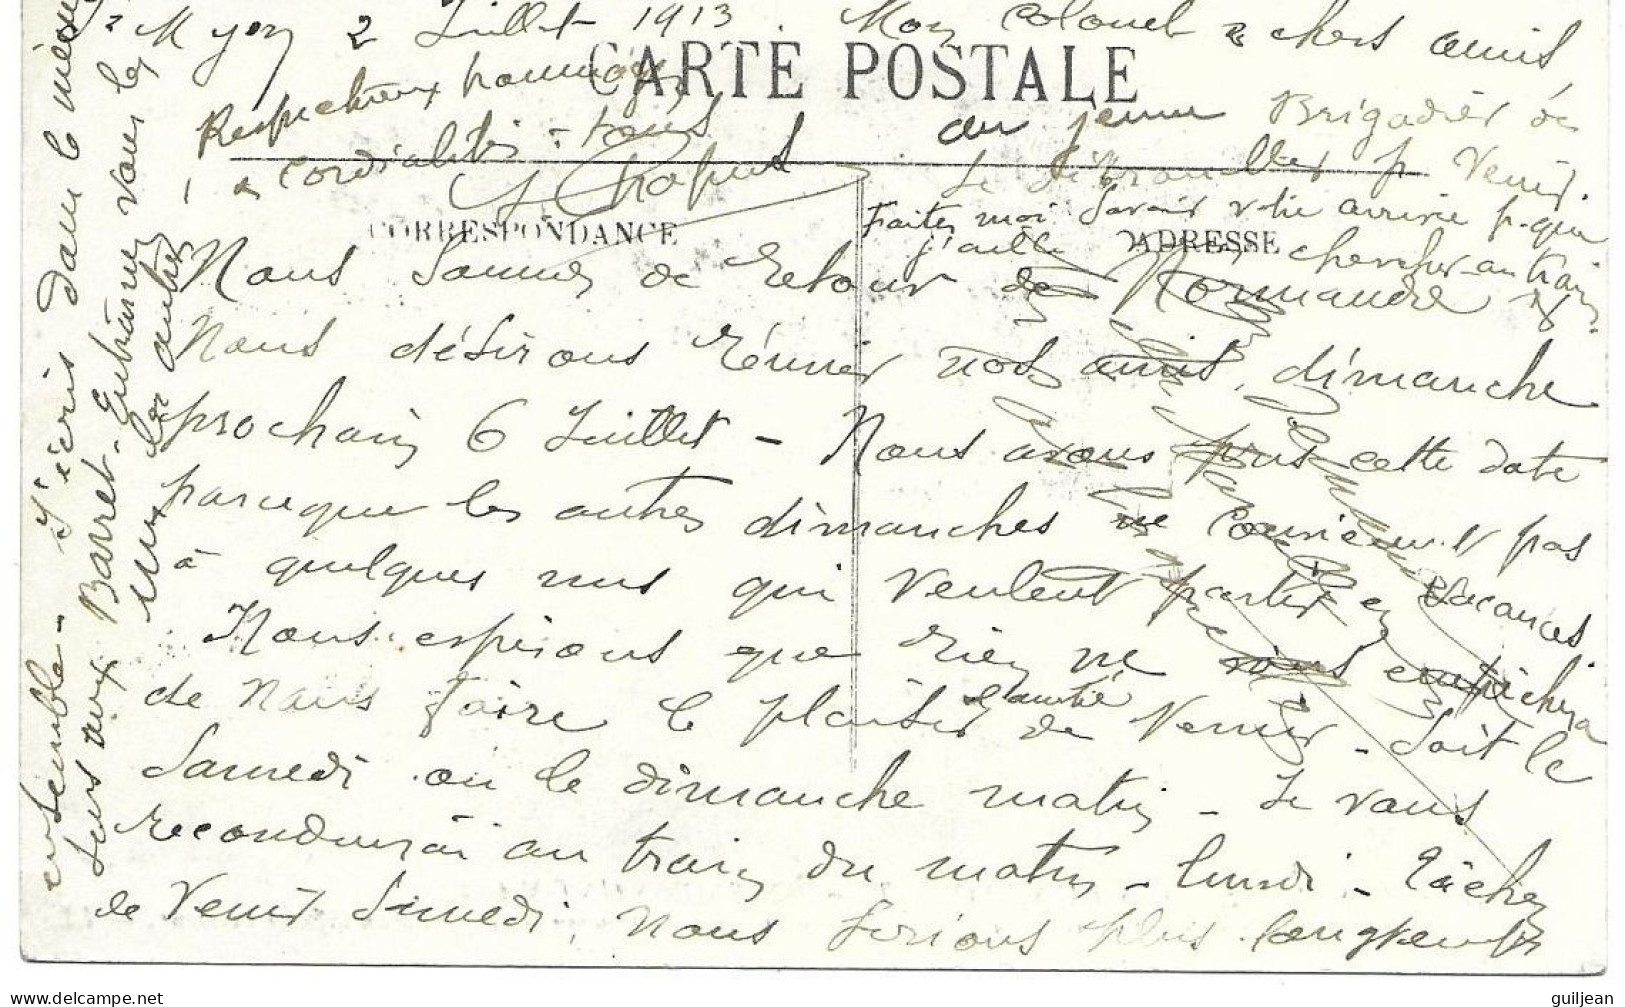 Myon 2 Juillet 1913. Mon colonel & chers amis,
CARTE POSTALE
CORRESPONDANCE
ADRESSE
Nous sommes de retour de Normandie &
Nous désirons réunir nos amis, dimanche
prochain 6 Juillet - Nous avons pris cette date
parceque les autres dimanches ne conviennent pas
à quelques uns qui veulent partir en vacances.
Nous espérons que rien ne vous empêchera
de nous faire l'amitié le plaisir de venir - soit le
Samedi ou le dimanche matin - Je vous
reconduirai au train du matin - lundi - Tâchez
de venir Samedi, nous serions plus longtemps
ensemble - J'écris dans le même
sens aux Barret - Entraînez vous les
uns les autres
Respectueux hommages
& cordialités à tous
au jeune Brigadier de
se débrouiller pr venir.
Faites moi savoir votre arrivée p. que
j'aille vous chercher au train.
delcampe.net
guiljean